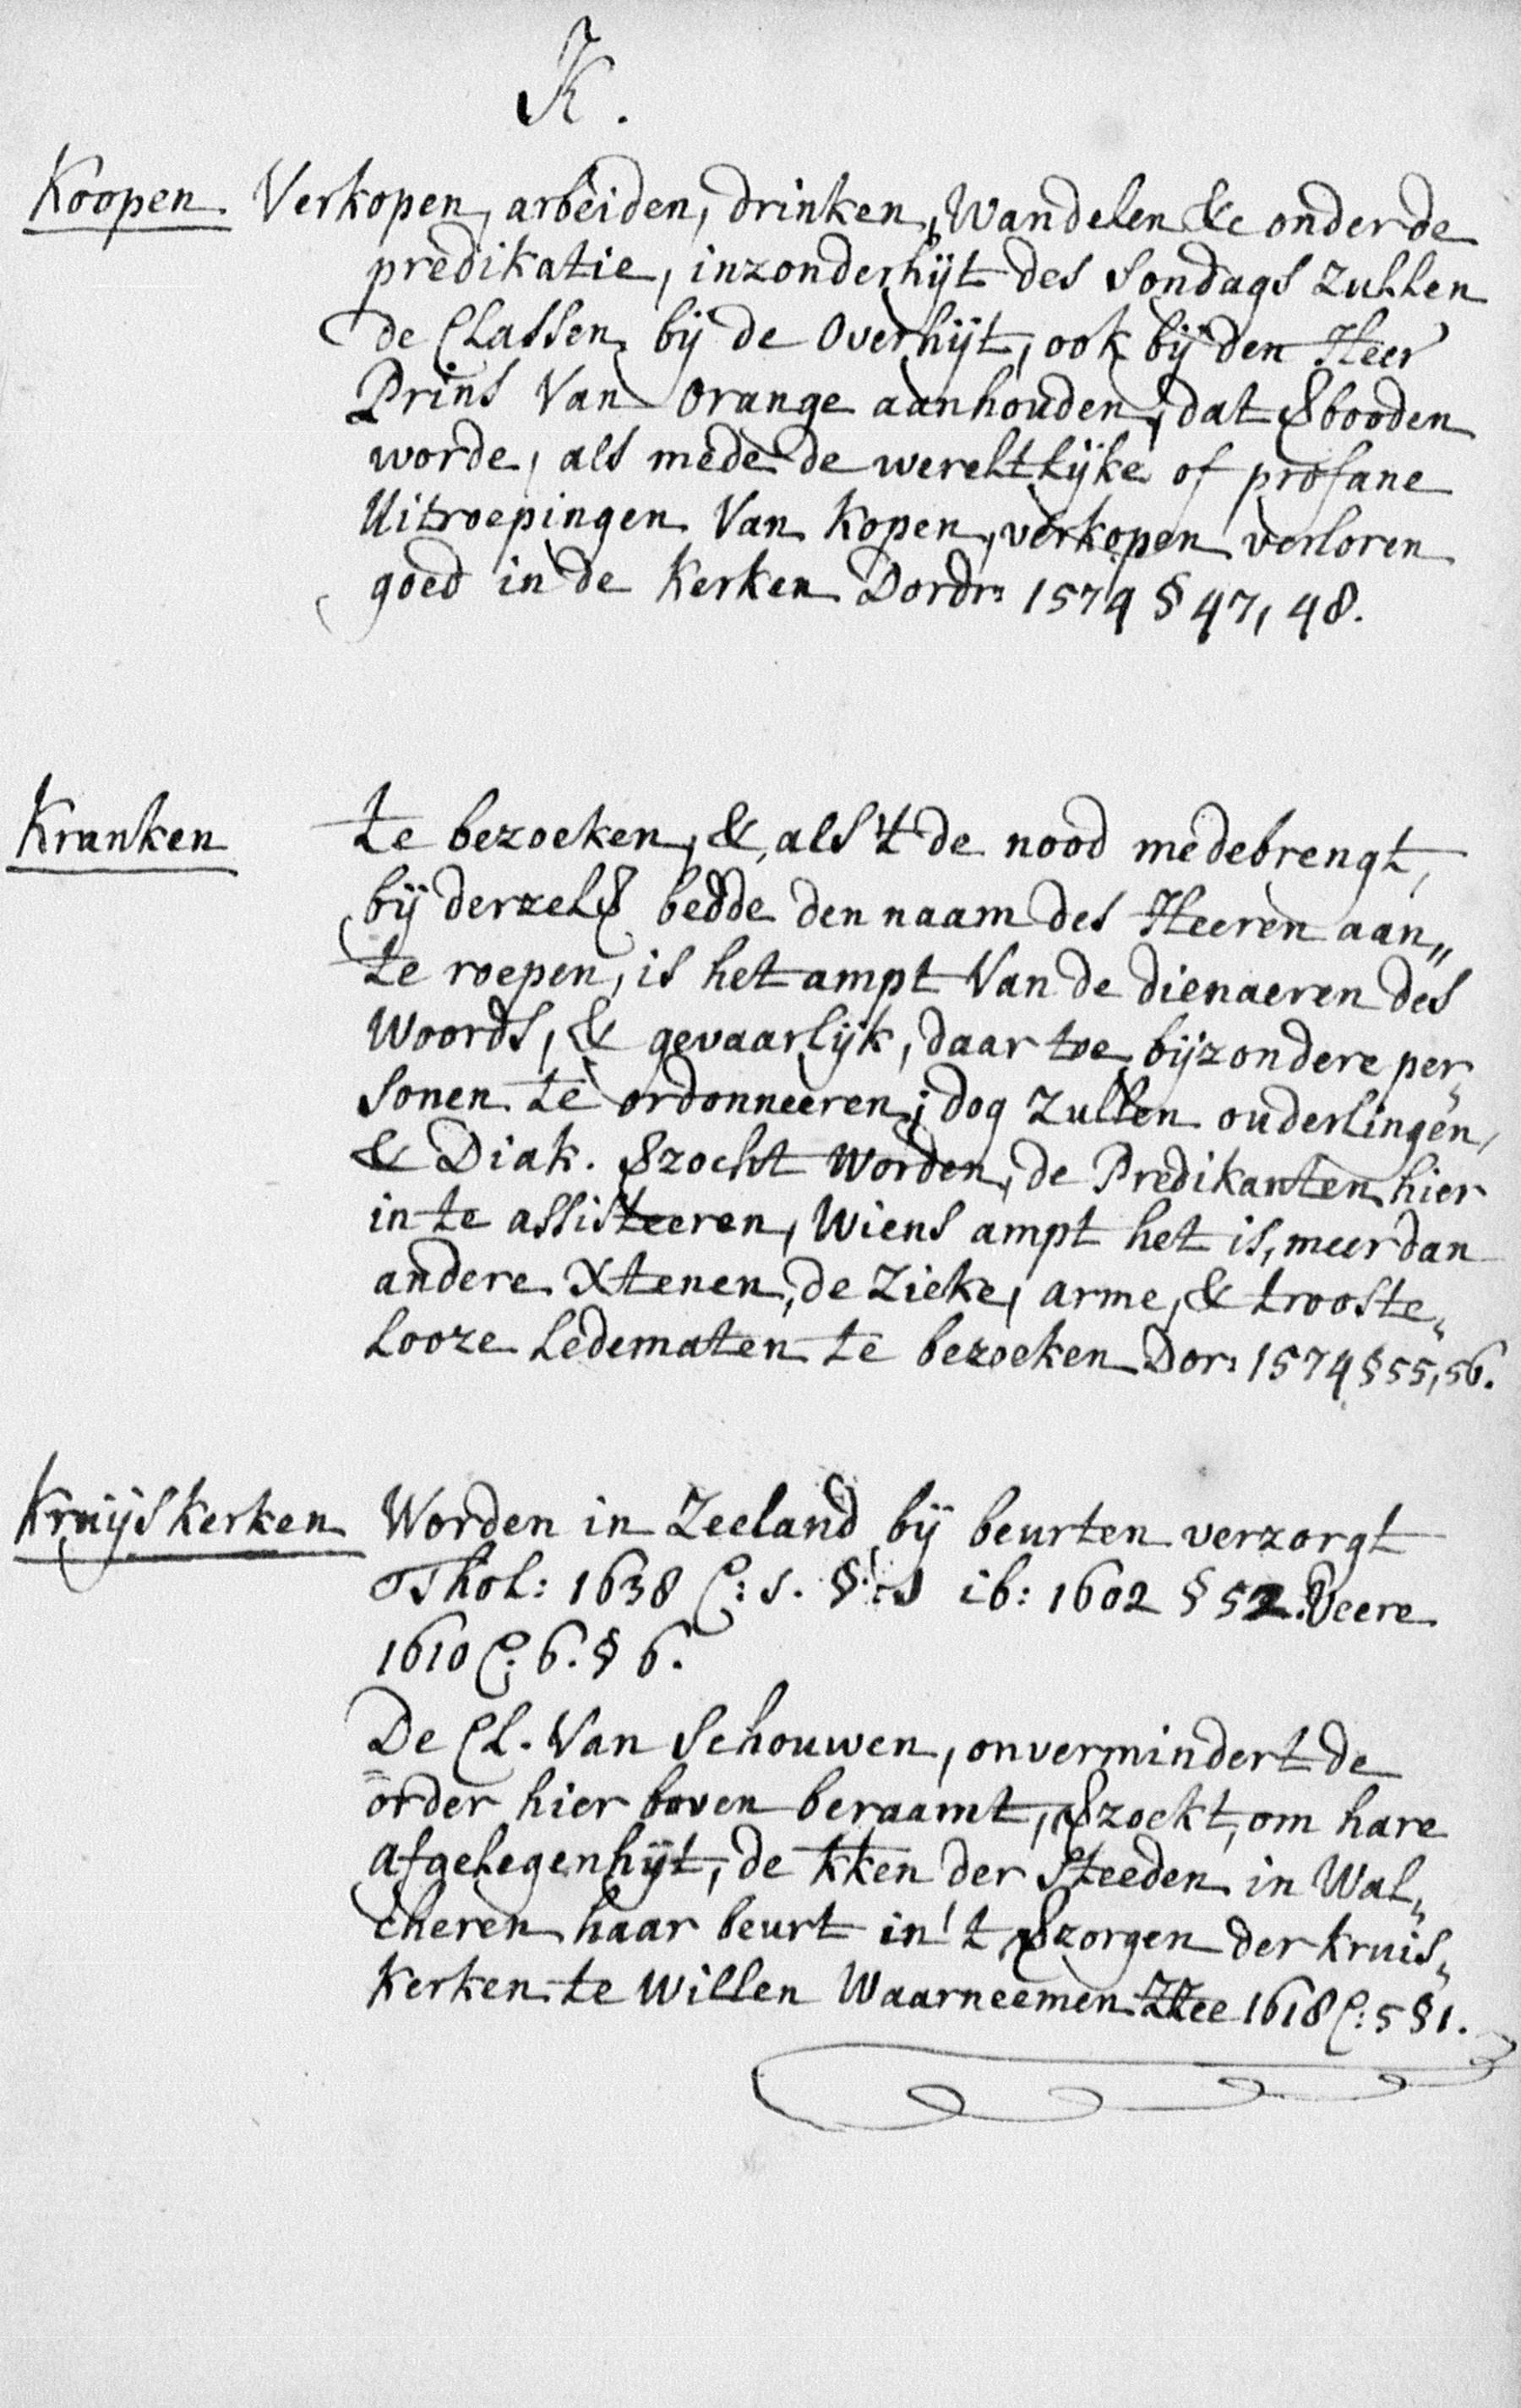 K.
Koopen. Verkopen, arbeiden, drinken, Wandelen &c onder de
predikatie, inzonderhijt des Sondags zullen
de Classen bij de Overhijt, ook bij den Heer
Prins Van Orange aanhouden, dat ꝟbooden
worde, als mede de wereltlijke of profane
Uitroepingen Van Kopen, verkopen verloren
goed in de Kerken Dordr: 1574 § 47, 48.
Kranken te bezoeken, & als 't de nood medebrengt,
bij derzelꝟ bedde den naam des Heeren aan„
te roepen, is het ampt Van de dienaeren des
Woords, & gevaarlijk, daar toe bijzondere per„
sonen te ordonneeren; dog zullen ouderlingen,
& Diak. ꝟzocht worden, de Predikanten hier
in te assisteeren, Wiens ampt het is, meer dan
andere Xtenen, de Zieke, arme, & trooste„
looze Ledematen te bezoeken Dor: 1574 § 55, 56.
Kruijskerken Worden in Zeeland bij beurten verzorgt
Thol: 1638 C: s. § ib: 1602 § 52. Veere
1610 C: 6. § 6.
De Cl. Van Schouwen, onvermindert de
order hier boven beraamt, ꝟzoekt, om hare
afgelegenhijt, de kken der Steeden in Wal„
cheren haar beurt in 't ꝟzorgen der kruis„
kerken te willen Waarneemen Zzee 1618 C: 5 § 1.